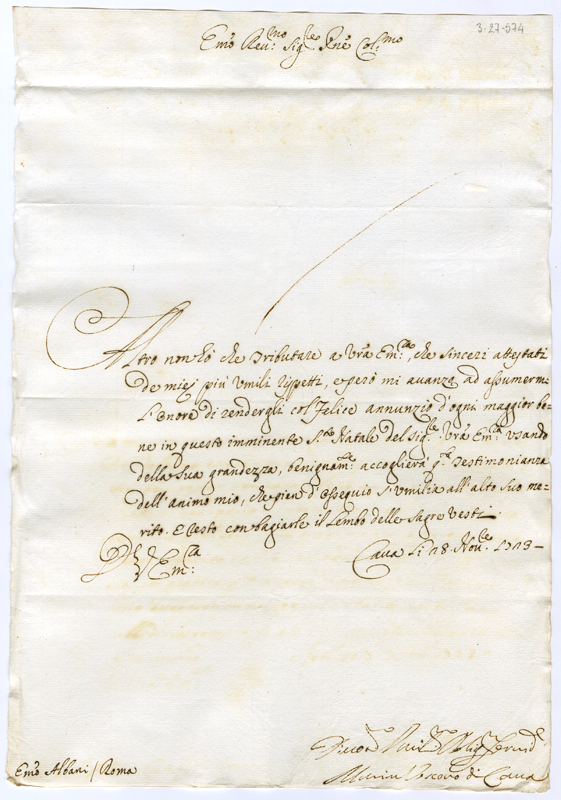 3-27-574
Emo Reu:mo Sigre Pne Colmo
Altro non hò che tributare a Vrã Em:za, che sinceri attestati
de miej più Vmili rispetti, e però mi auanza ad assumerm
l'onore di rendergli col felice annunzio d'ogni maggior be=
ne in questo imminente S.to Natale del Sigre Vrã Em:za Vsando
della Sua grandezza, benignam:te accoglierà q.ta testimonianza
dell'Animo mio, che pien d'ossequio s'vmilia all'alto Suo me=
rito. E resto con bagiarle il Lembo delle Sagre Vesti
D V Em:za
Caua li 18. Nou:re 1713
Emo Albani / Roma
Vescouo di Caua